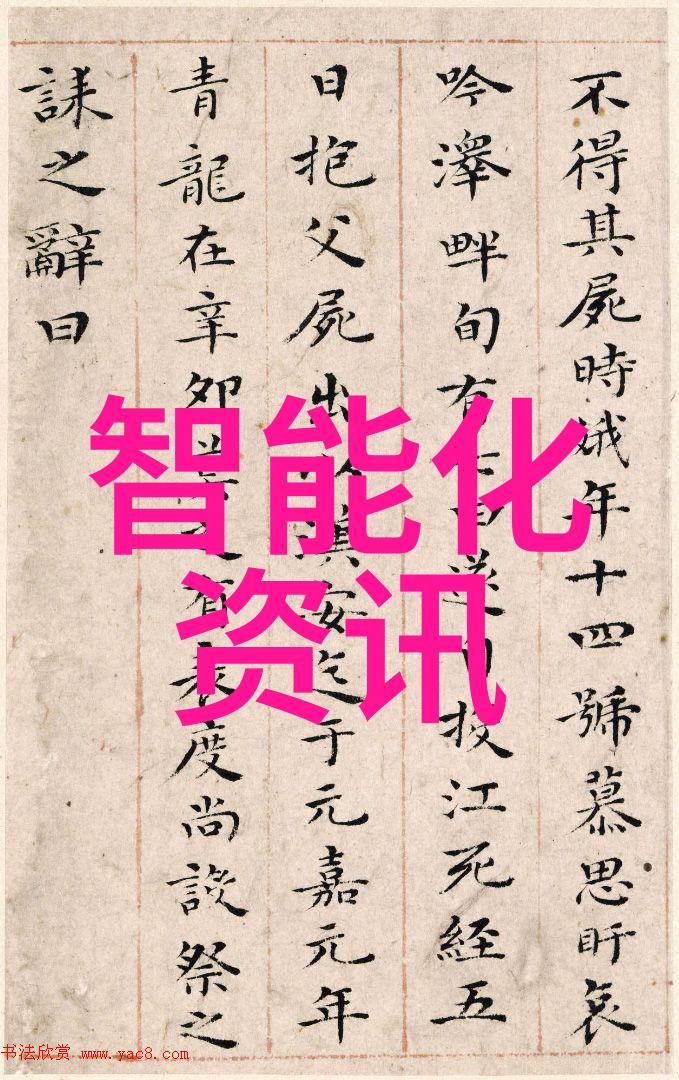 不得其屍時娥年十四號慕思盱哀
吟澤畔旬有日遂投江死経五
日抱父屍出漢安迄于元嘉元年
青龍在辛卯之有表度尚設祭之
誄之辭曰
智能化
资讯
书法欣赏 www.yac8.com